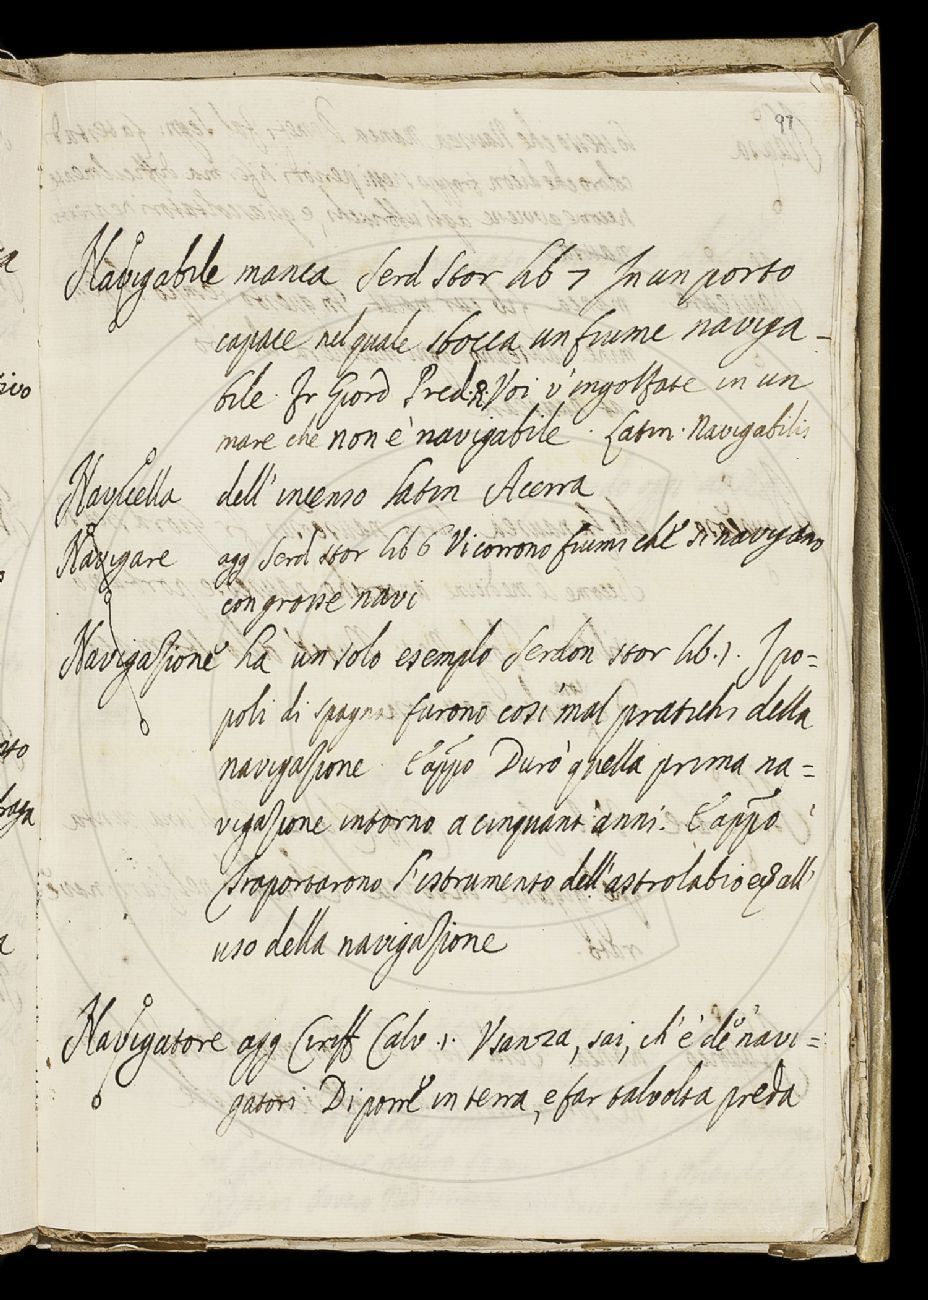 97
Navigabile manca Serd Stor lib 7 In un porto
capace nel quale sbocca un fiume naviga-
bile Fr Giord Pred. R. Voi v'ingolfate in un
mare che non è navigabile. Latin. Navigabilis
Navicella dell'incenso latin Acerra
Navigare agg Serd stor lib 6 Vi corrono fiumi che si navigano
con grosse navi
Navigazione ha un solo esempio Serdon stor lib. 1. I po=
poli di spagna furono così mal pratichi della
navigazione E appo Durò quella prima na=
vigazione intorno a cinquant'anni. E appo
Traportarono l'istrumento dell'astrolabio all'
uso della navigazione
Navigatore agg Ciriff Calv. 1. Usanza, sai, ch'è de' navi=
gatori Di porre in terra, e far talvolta preda